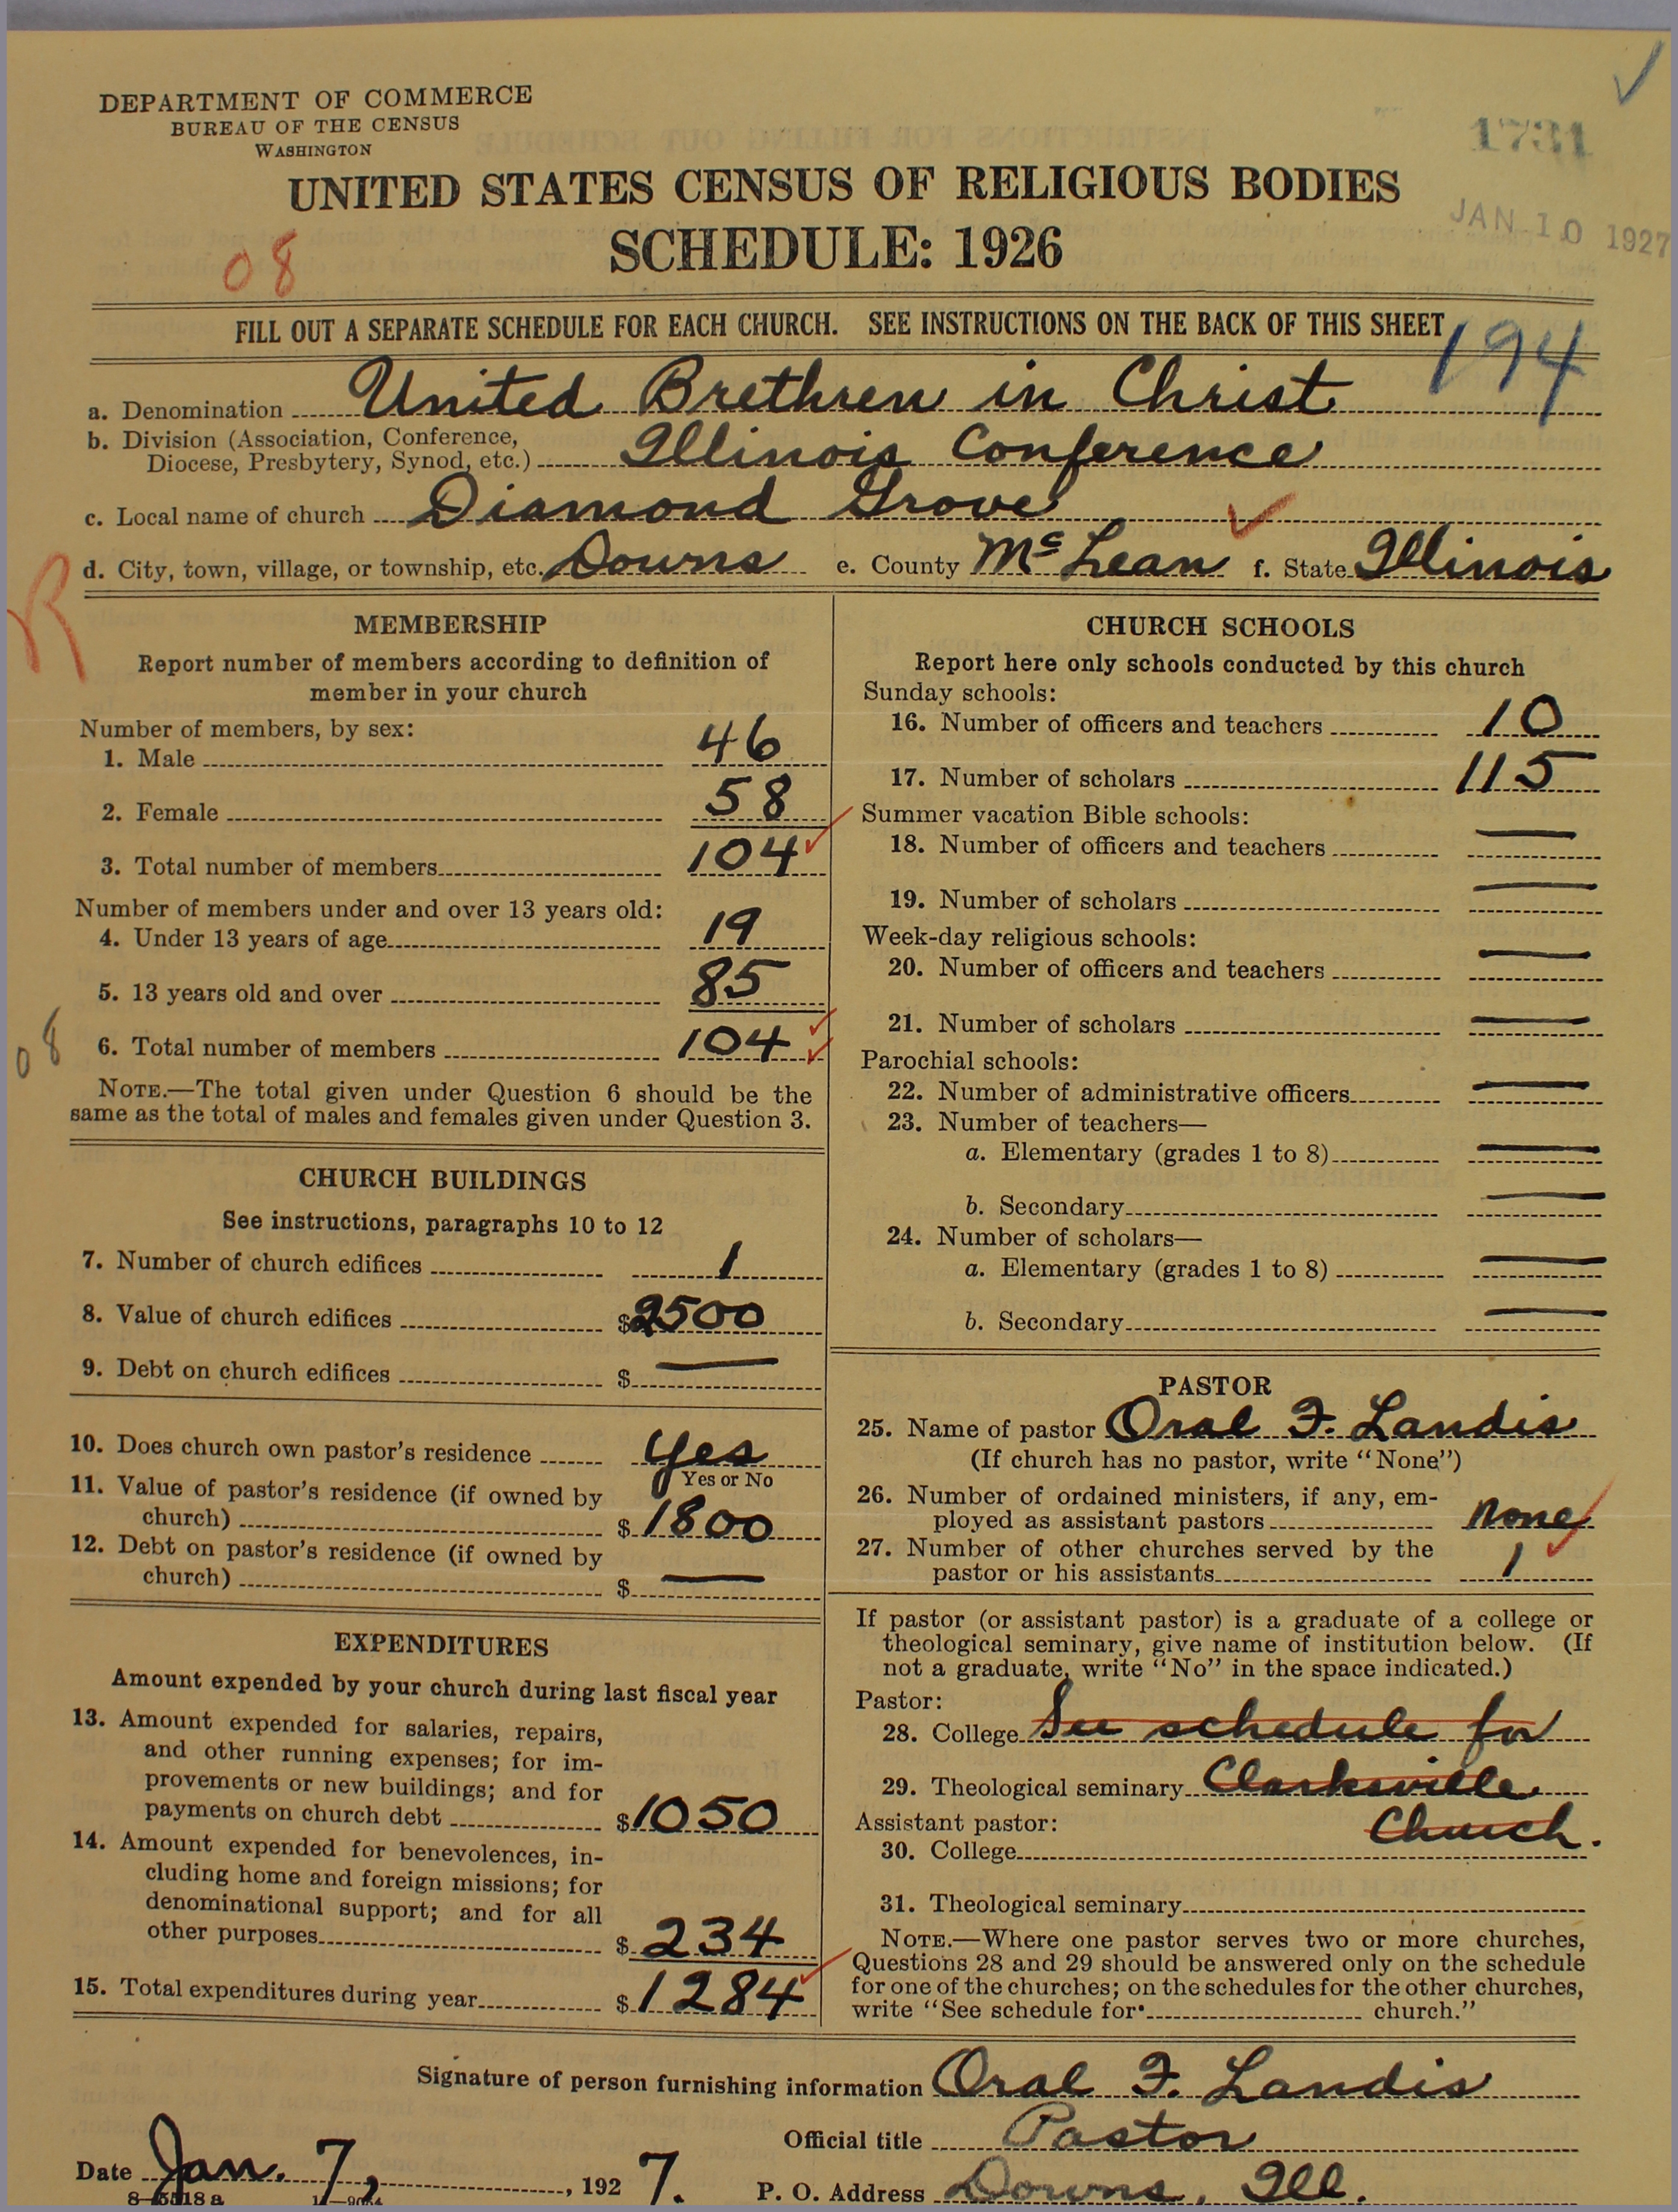 DEPARTMENT OF COMMERCE
BUREAU OF THE CENSUS
WASHINGTON
1731
UNITED STATES CENSUS OF RELIGIOUS BODIES
JAN 10 1927
SCHEDULE: 1926
08
FILL OUT A SEPARATE SCHEDULE FOR EACH CHURCH. SEE INSTRUCTIONS ON THE BACK OF THIS SHEET
194
a. Denomination United Brethren in Christ
b. Division (Association, Conference,
Diocese, Presbytery, Synod, etc.) Illinois Conference
c. Local name of church Diamond Grove
d. City, town, village, or township, etc. Downs e. County Mc Lean f. State Illinois
R
MEMBERSHIP
Report number of members according to definition of
member in your church
Number of members, by sex:
1. Male 46
2. Female 58
3. Total number of members 104
Number of members under and over 13 years old:
4. Under 13 years of age 19
5. 13 years old and over 85
08
6. Total number of members 104
NOTE.—The total given under Question 6 should be the
same as the total of males and females given under Question 3.
CHURCH BUILDINGS
See instructions, paragraphs 10 to 12
7. Number of church edifices 1
8. Value of church edifices $2500
9. Debt on church edifices $ —
10. Does church own pastor's residence Yes
Yes or No
11. Value of pastor's residence (if owned by
church) $1800
12. Debt on pastor's residence (if owned by
church) $ —
EXPENDITURES
Amount expended by your church during last fiscal year
13. Amount expended for salaries, repairs,
and other running expenses; for im-
provements or new buildings; and for
payments on church debt $1050
14. Amount expended for benevolences, in-
cluding home and foreign missions; for
denominational support; and for all
other purposes $234
15. Total expenditures during year $1284
CHURCH SCHOOLS
Report here only schools conducted by this church
Sunday schools:
16. Number of officers and teachers 10
17. Number of scholars 115
Summer vacation Bible schools:
18. Number of officers and teachers —
19. Number of scholars —
Week-day religious schools:
20. Number of officers and teachers —
21. Number of scholars —
Parochial schools:
22. Number of administrative officers —
23. Number of teachers—
a. Elementary (grades 1 to 8) —
b. Secondary —
24. Number of scholars—
a. Elementary (grades 1 to 8) —
b. Secondary —
PASTOR
25. Name of pastor Oral F. Landis
(If church has no pastor, write "None")
26. Number of ordained ministers, if any, em-
ployed as assistant pastors none
27. Number of other churches served by the
pastor or his assistants 1
If pastor (or assistant pastor) is a graduate of a college or
theological seminary, give name of institution below. (If
not a graduate, write "No" in the space indicated.)
Pastor:
28. College See schedule for
29. Theological seminary Clarksville
Assistant pastor: Church.
30. College
31. Theological seminary
NOTE.—Where one pastor serves two or more churches,
Questions 28 and 29 should be answered only on the schedule
for one of the churches; on the schedules for the other churches,
write "See schedule for church."
Signature of person furnishing information Oral F. Landis
Official title Pastor
Date Jan. 7, 1927. P. O. Address Downs, Ill.
8—5518 a